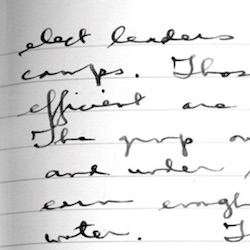 elect leaders
camps. Thos
efficient are
The group o
and under
earn enough
water. T